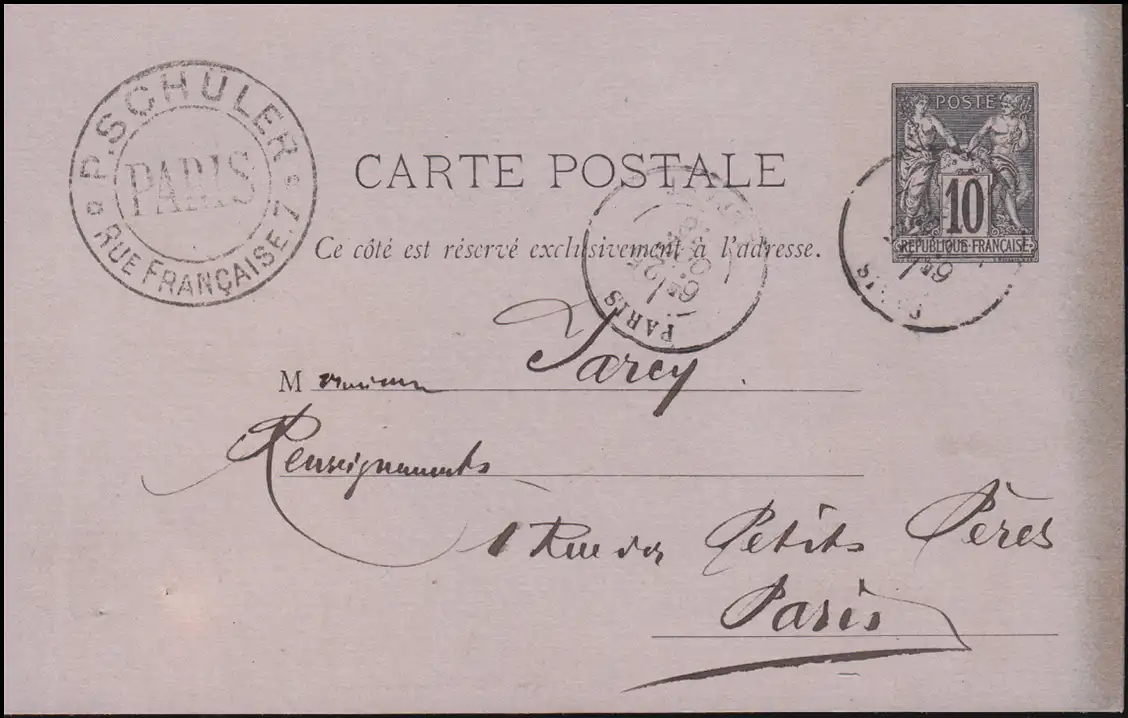 P. SCHÜLER
PARIS
RUE FRANÇAISE, 7
POSTE
10
RÉPUBLIQUE FRANÇAISE
CARTE POSTALE
Ce côté est réservé exclusivement à l'adresse.
PARIS
PARIS
Monsieur Jarcy
Renseignements
1 Rue des Petits Pères
Paris